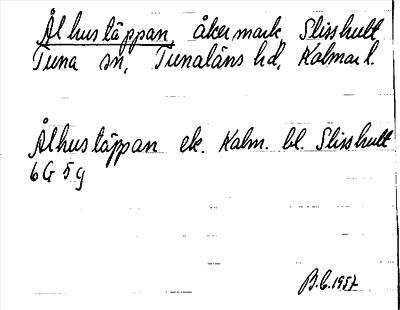 Ålhustäppan, åkermark, Slisshult
Tuna sn, Tunaläns hd, Kalmar l.
Ålhustäppan ek. Kalm. bl. Slisshult
6G 5g
B.C. 1957